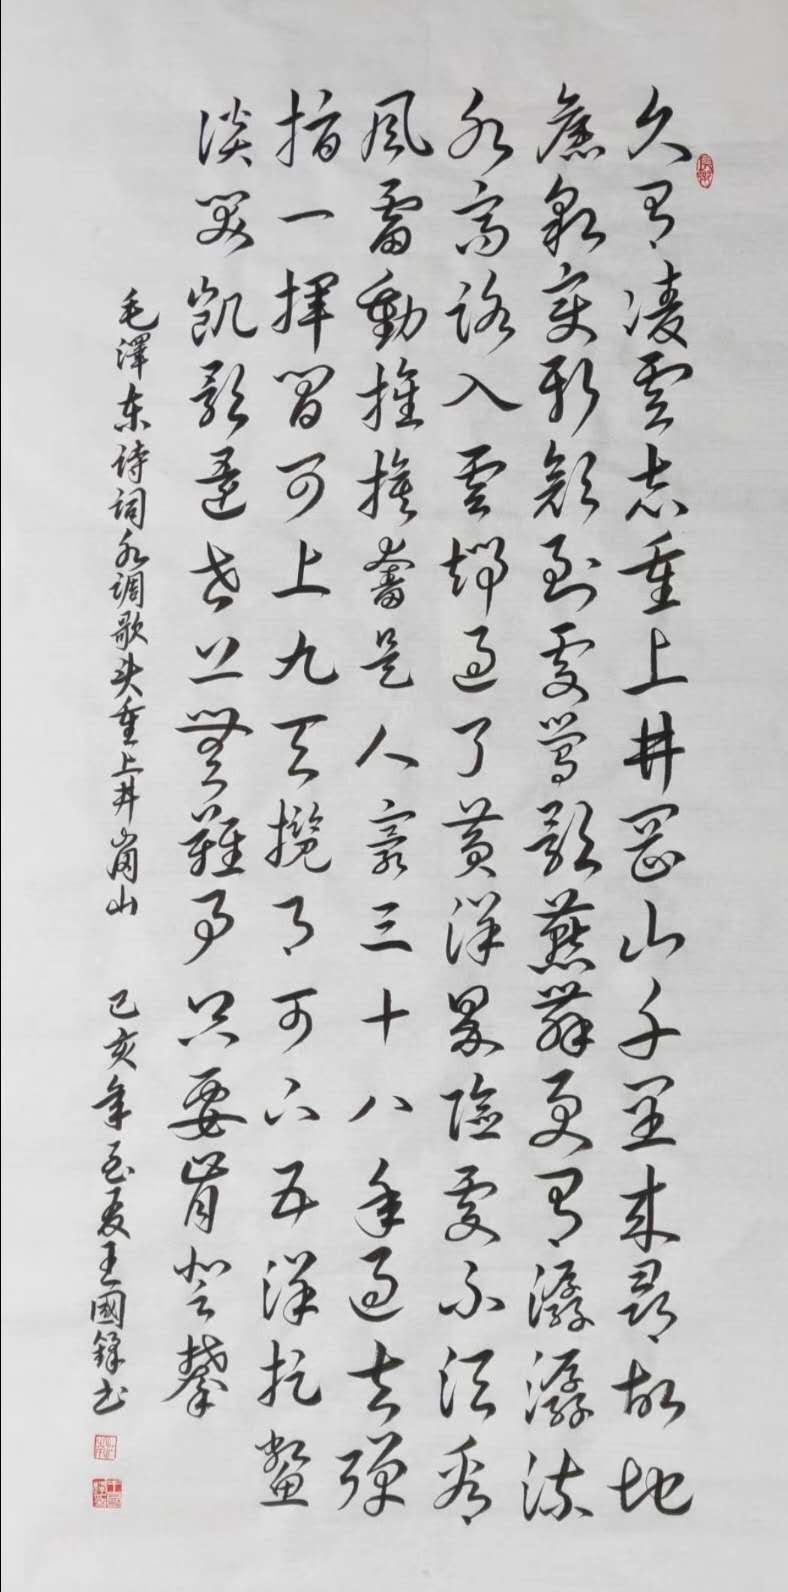 久有凌雲志重上井岡山千里来尋故地
舊貌變新顔到處鶯歌燕舞更有潺潺流
水高路入雲端過了黄洋界險處不須看
風雷動旌旗奮是人寰三十八年過去彈
指一揮間可上九天攬月可下五洋捉鱉
談笑凱歌還世上無難事只要肯登攀
毛澤东诗词水调歌头重上井崗山 己亥年至夏王國鋒书